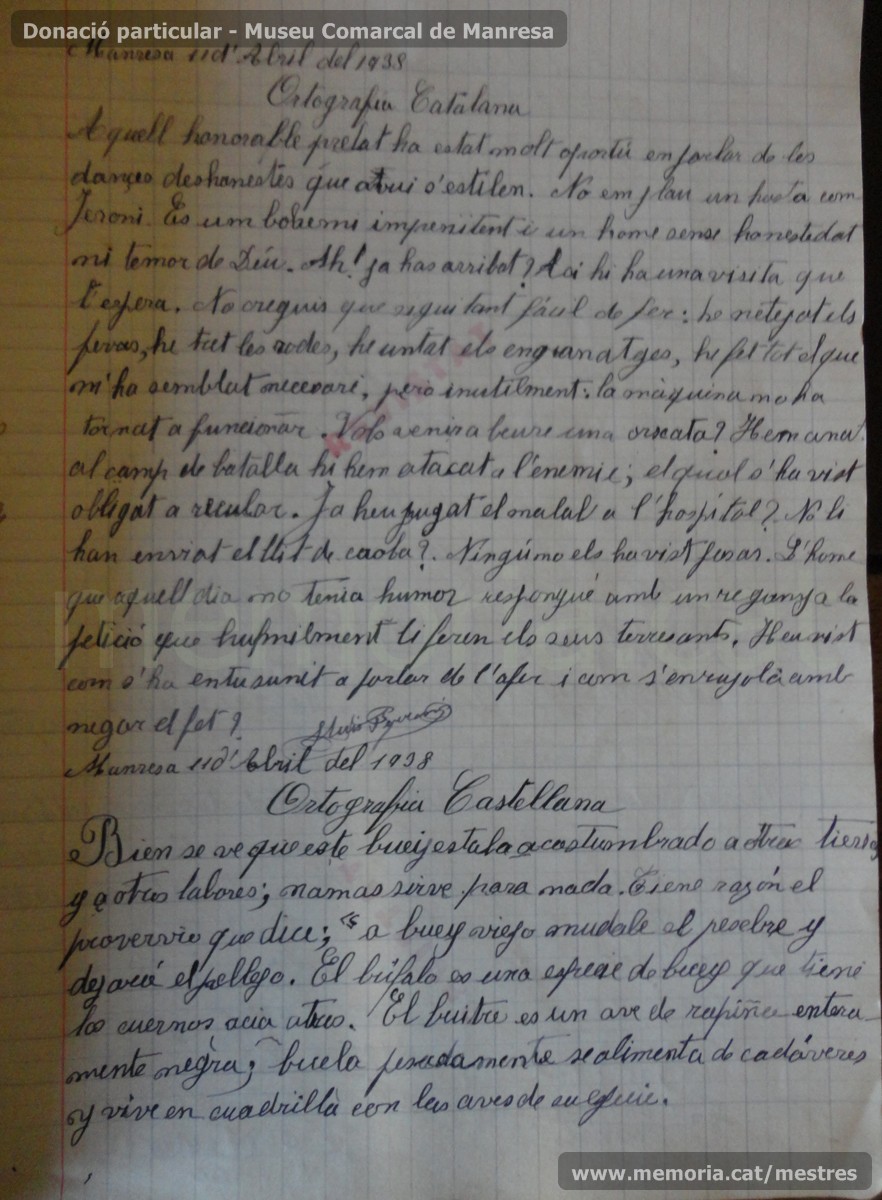 Donació particular - Museu Comarcal de Manresa
Manresa 11 d'Abril del 1938
Ortografia Catalana
Aquell honorable prelat ha estat molt oportú en parlar de les
dançes deshanestes que avui s'estilen. No em plau un poeta com
Jeroni. Es um bohemi impenitent i un home sense honestedat
ni temor de Déu. Ah! ja has arribat? Aci hi ha una visita que
t'espera. No creguis que sigui tant fácil de fer: he netejat els
pevas, he tret les rodes, he untat els engranatges, he fet tot el que
m'ha semblat necesari, pero inutilment: la màquina no ha
tornat a funcionar. Vols venir a beure una orxata? Hem anat
al camp de batalla hi hem atacat a l'enemic; el qual s'ha vist
obligat a recular. Ja heu pugat el malal a l'hospital? No li
han enviat el llit de caoba? Ningú no els ha vist pasar. L'home
que aquell dia no tenia humor respongué amb un reganya la
petició que humilment li feren els seus terresants. Heu vist
com s'ha entusunit a parlar de l'afer i com s'enrujolà amb
negar el fet?
Manresa 11 d'Abril del 1938
Ortografia Castellana
Bien se ve que este buey estaba acostumbrado a otra tierra
y a otras labores; namas sirve para nada. Tiene razón el
provervio que dice; "a buey viejo mudale el pesebre y
dejará el pellejo. El búfalo es una especie de buey que tiene
los cuernos acia atras. El buitre es un ave de rapiña entera-
mente negra; buela pesadamente se alimenta de cadáveres
y vive en cuadrilla con las aves de su
www.memoria.cat/mestres